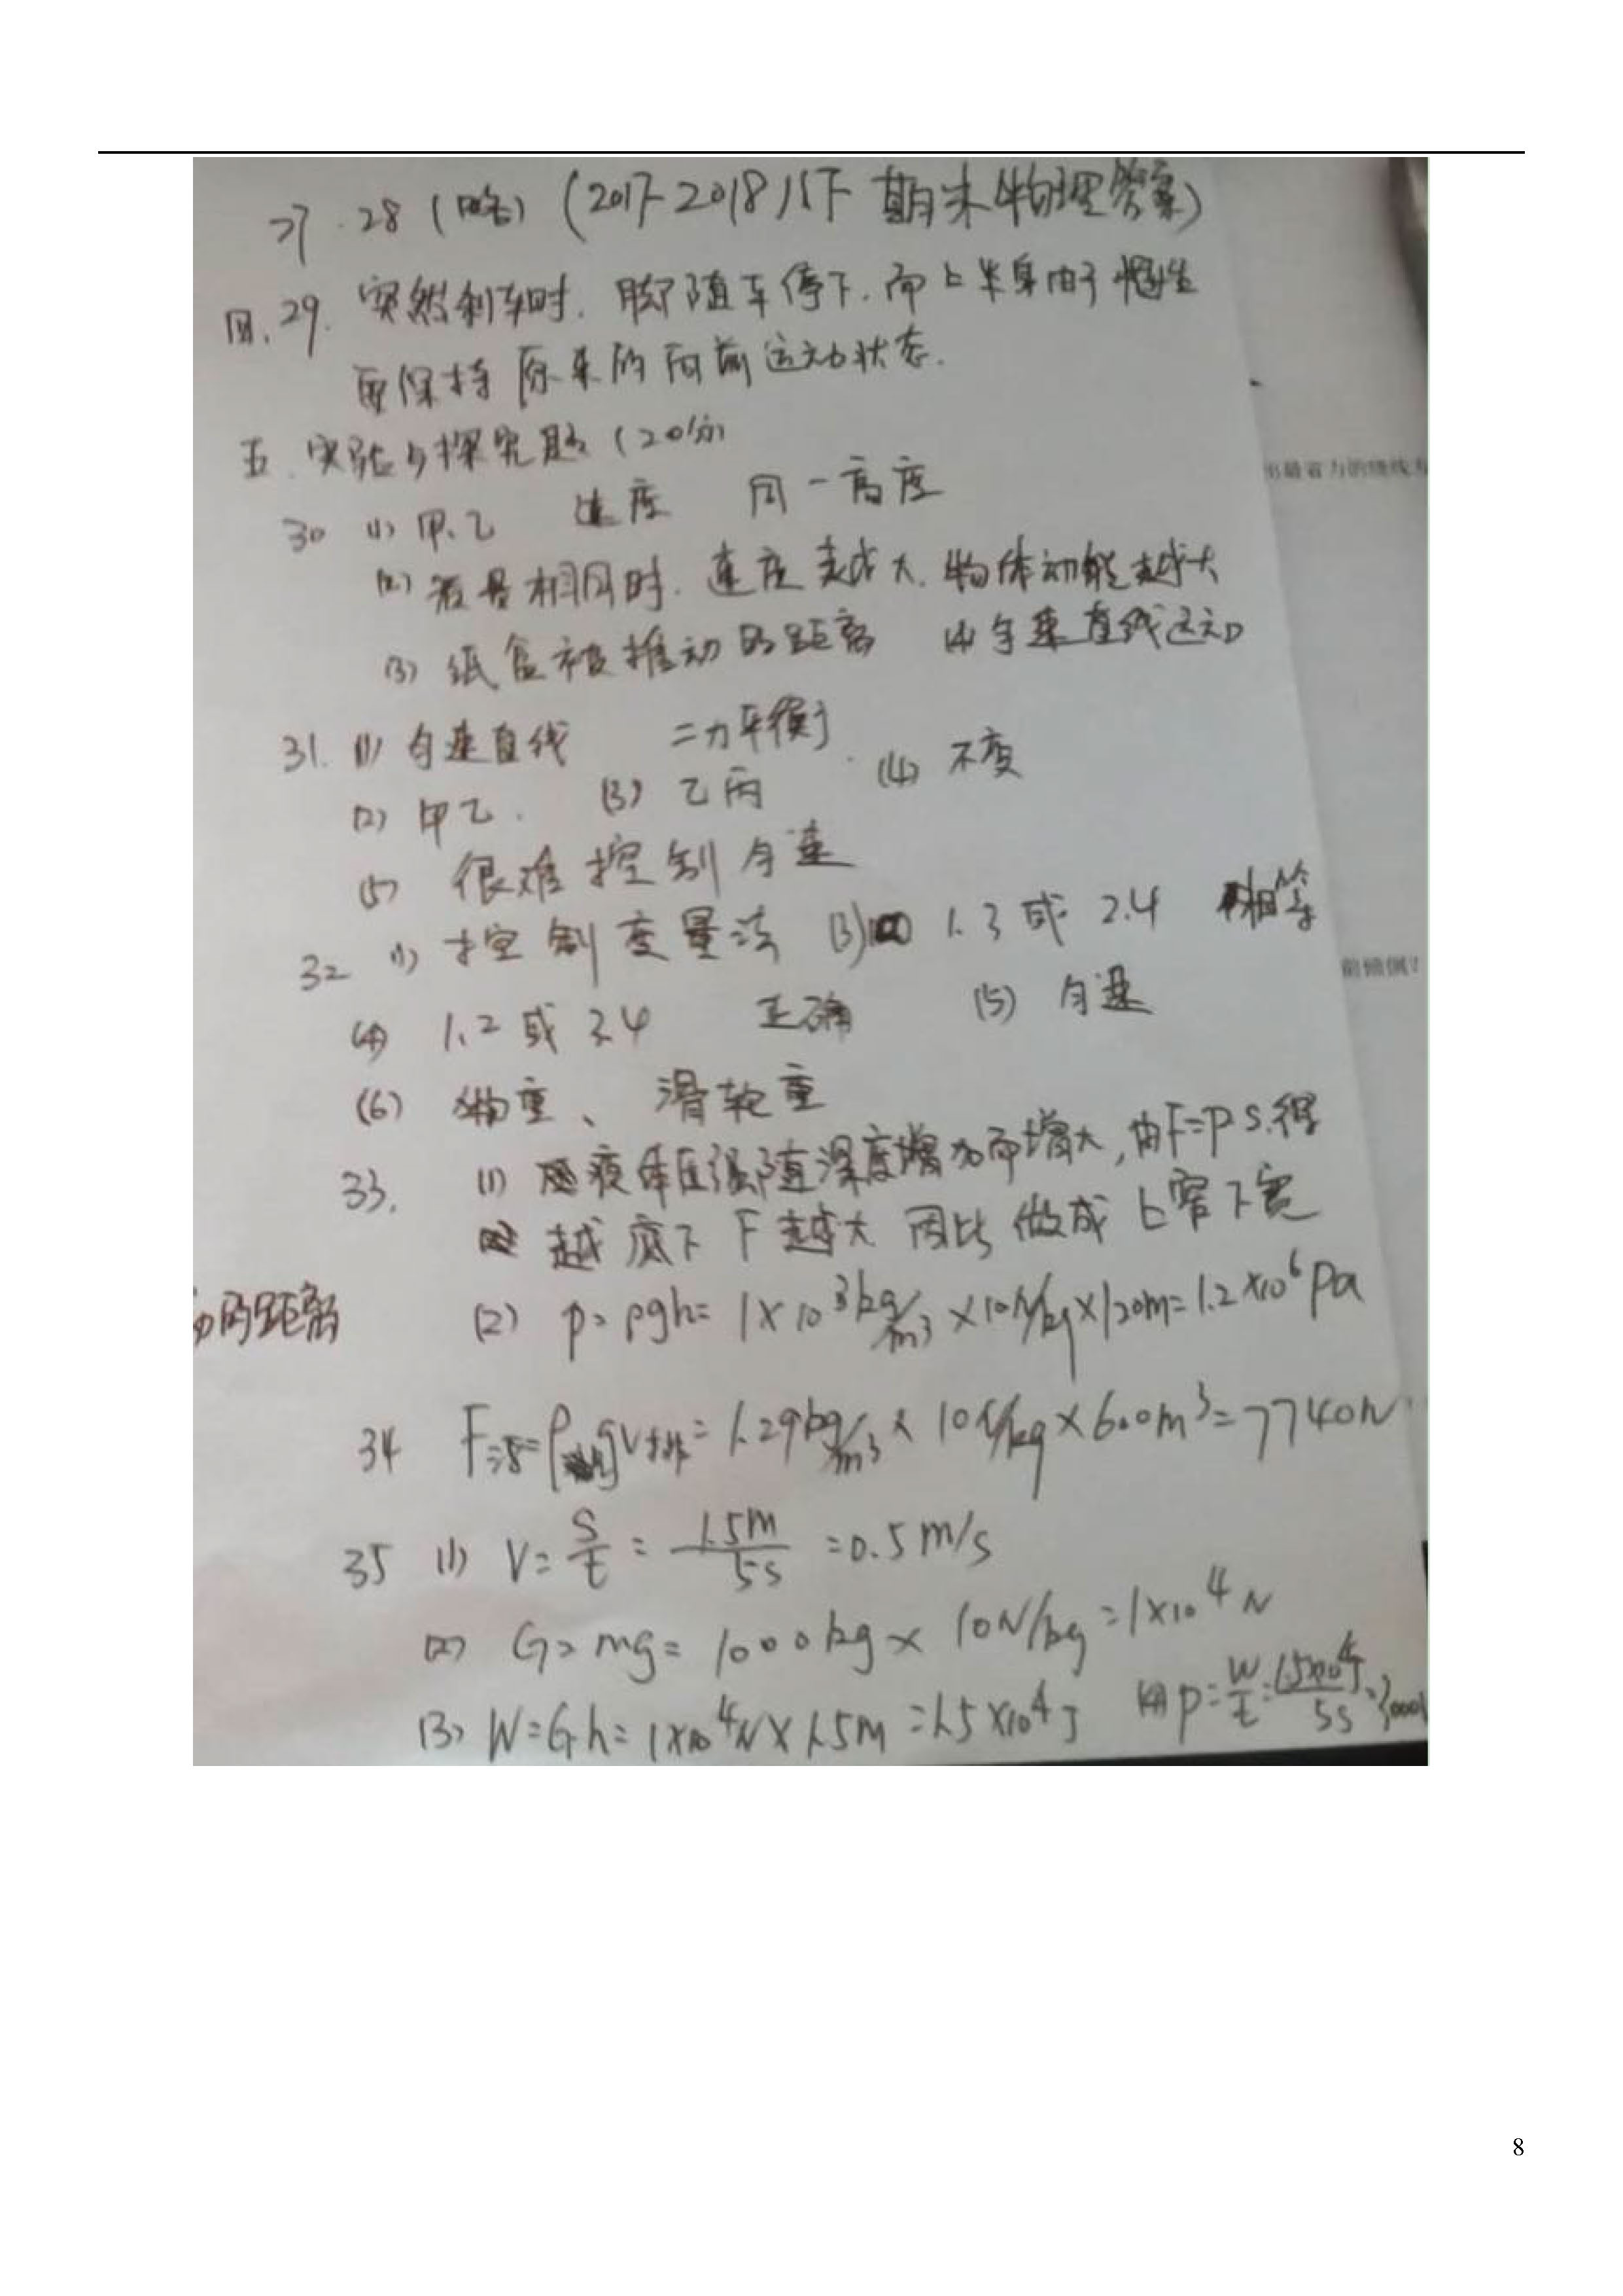 27.28(略)(2017-2018八下期末物理答案)
四.29.突然刹车时.脚随车停下.而上半身由于惯性
要保持原来的向前运动状态.
五.实验与探究题(20分)
30 (1)甲.乙 速度 同一高度
(2)质量相同时.速度越大.物体动能越大
(3)纸盒被推动的距离 (4)匀速直线运动
31.(1)匀速直线 二力平衡
(2)甲乙. (3)乙丙 (4)不变
(5)很难控制匀速
32 (1)控制变量法 (3) 1.3或2.4 相等
(4) 1.2或3.4 正确 (5)匀速
(6)物重、滑轮重
33. (1)液体压强随深度增加而增大,由F=PS.得
越底下F越大 因此做成上窄下宽
动的距离
(2) p=ρgh=1×10³kg/m³×10N/kg×120m=1.2×10⁶Pa
34 F浮=ρgV排=1.29kg/m³×10N/kg×600m³=7740N
35 (1) V=S/t=1.5m/5s=0.5m/s
(2) G=mg=1000kg×10N/kg=1×10⁴N
(3) W=Gh=1×10⁴N×1.5m=1.5×10⁴J (4) p=W/t=1.5×10⁴J/5s=3000
出最省力的绕线方
前倾倒?
8